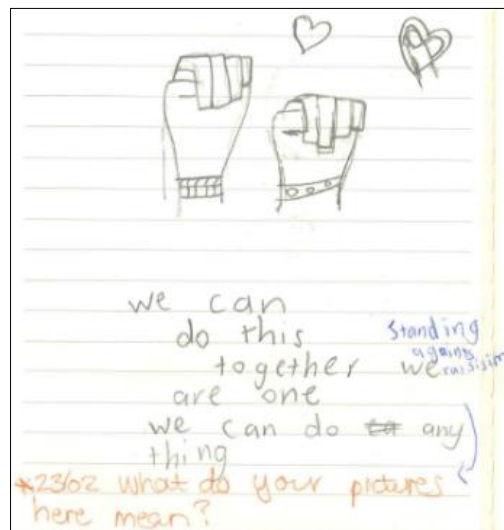 we can
do this
together we
are one
we can do any
thing
Standing
agains
raisisim
*23/02 What do your pictures
here mean?